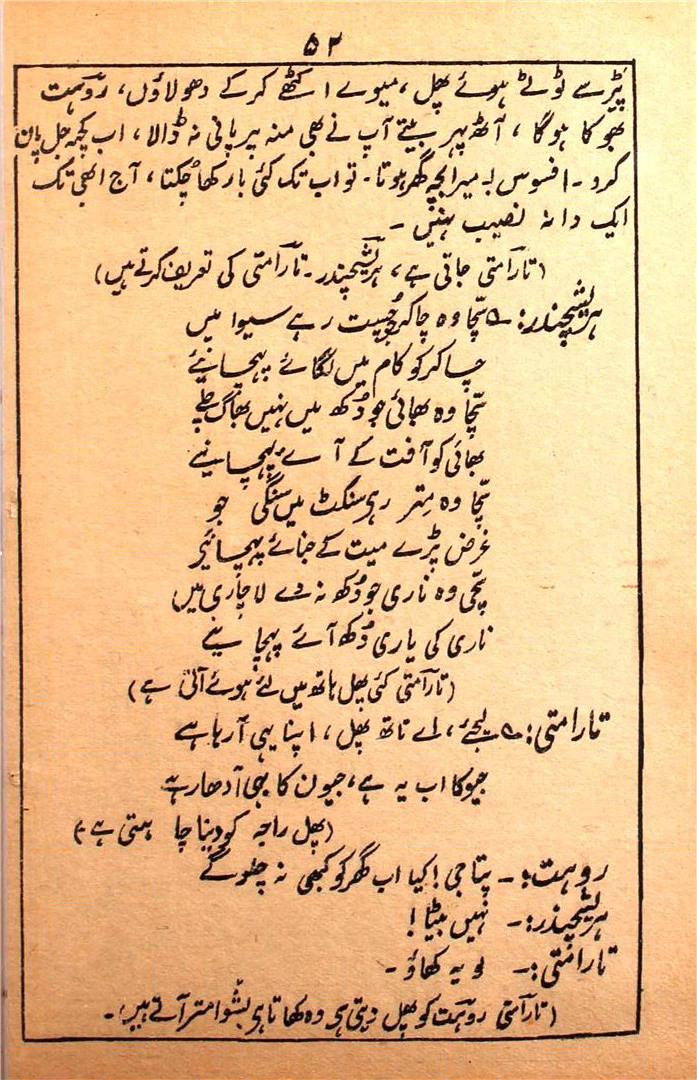 ۵۲
پٹر سے ٹوٹے ہوئے پھل، میوے اکٹھے کرکے دھولاؤں، روہت
بھوکا ہوگا، آٹھ پہر بیتے آپ نے بھی منہ پر پانی نہ ڈالا، اب کچھ جل پان
کرو۔ افسوس یہ میرا بچہ گھر ہوتا۔ تو اب تک کئی بار کھا چکتا، آج ابھی تک
ایک دانہ نصیب نہیں۔
(تارامتی جاتی ہے، ہریشچندر۔ تارامتی کی تعریف کرتے ہیں)
ہریشچندر: ؎ سچّا وہ چاکر جو چُست رہے سیوا میں
چاکر کو کام میں لگائے پہچانیئے
سچّا وہ بھائی جو دُکھ میں نہیں بھاگ چلے
بھائی کو آفت کے آے پہچانیے
سچّا وہ مِتر رہو سنکٹ میں سنگی جو
غرض پڑے میت کے جائے پہچانیے
سچّی وہ ناری جو دُکھ نہ دے لاچاری میں
ناری کی یاری دُکھ آئے پہچانیے
(تارامتی کئی پھل ہاتھ میں لئے ہوئے آتی ہے)
تارامتی: ؎ لیجئے، اے ناتھ پھل، اپنا یہی آہار ہے
جیوکا اب یہ ہے، جیون کا یہی آدھار ہے
(پھل راجہ کو دینا چاہتی ہے)
روہت:۔ پتا جی! کیا اب گھر کو کبھی نہ چلوگے
ہریشچندر:۔ نہیں بیٹا!
تارامتی:۔ لو یہ کھاؤ۔
(تارامتی روہت کو پھل دیتی ہی وہ کھاتا ہی بشوامتر آتے ہیں)۔